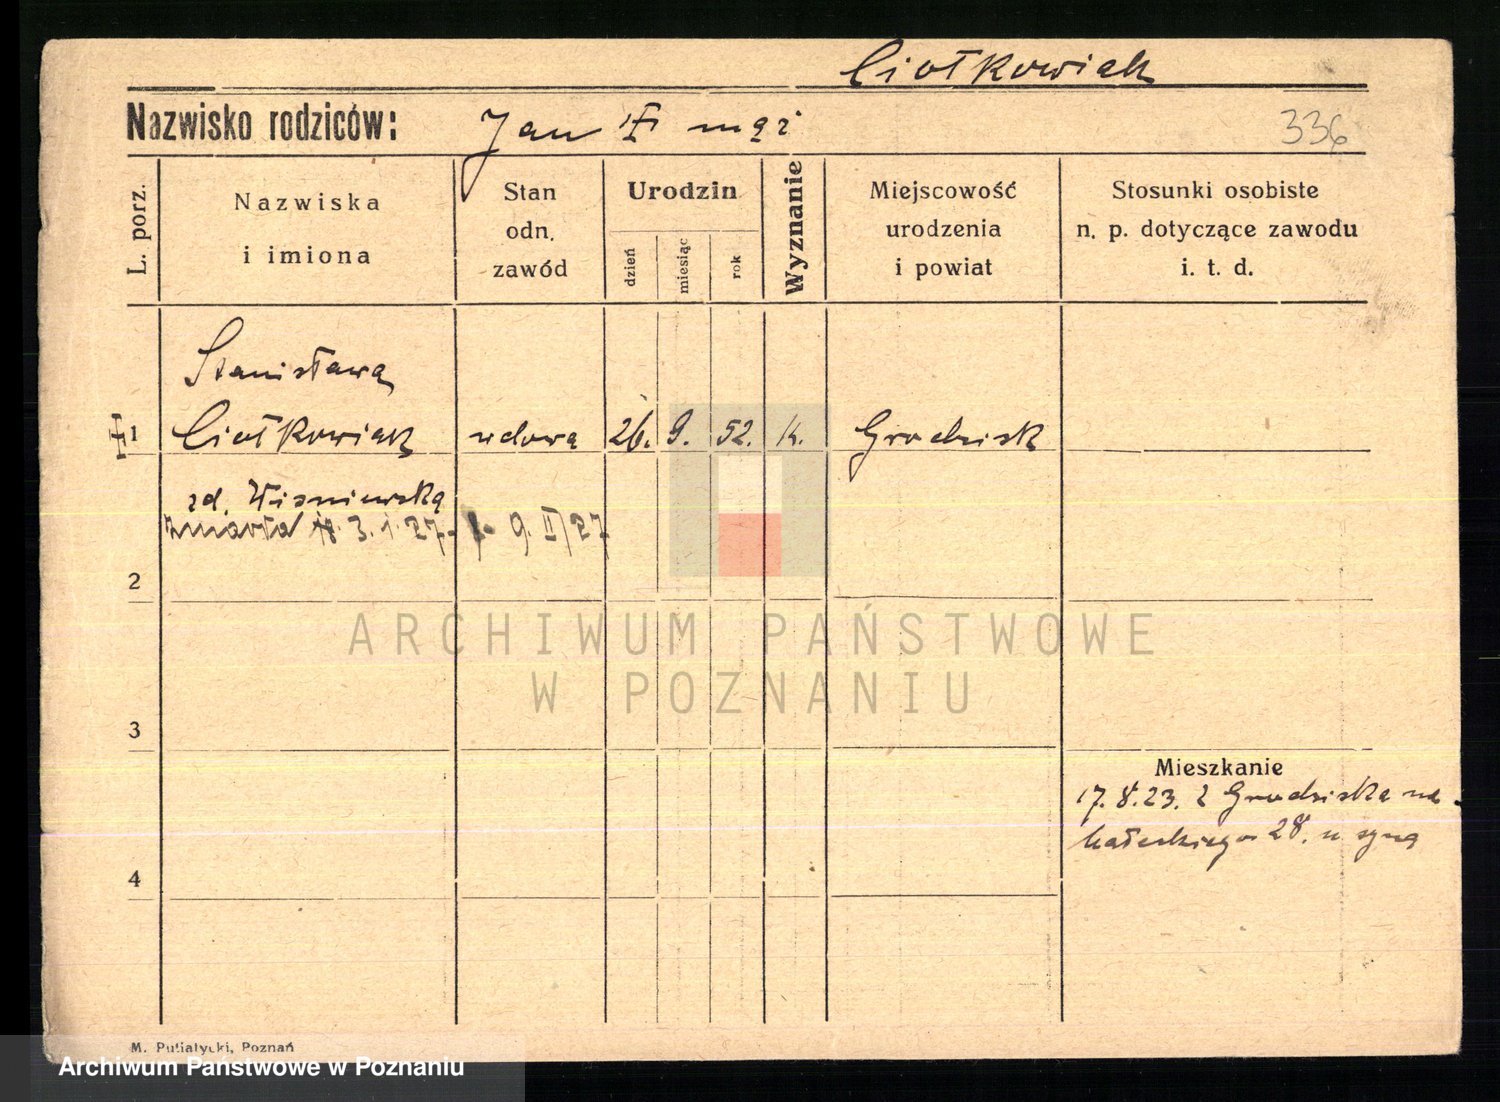 Ciołkowiak
Nazwisko rodziców: Jan mąż
336
L. porz.
Nazwiska
i imiona
Stan
odn.
zawód
Urodzin
dzień
miesiąc
rok
Wyznanie
Miejscowość
urodzenia
i powiat
Stosunki osobiste
n. p. dotyczące zawodu
i. t. d.
Stanisława
1 Ciołkowiak wdowa 26. 9. 52. k. Grodzisk
zd. Wiśniewska
zmarła 3.1.27. 9.II/27
2
ARCHIWUM PAŃSTWOWE
W POZNANIU
3
Mieszkanie
17.8.23. z Grodziska na
Małeckiego 28. u syna
4
M. Putiatycki, Poznań
Archiwum Państwowe w Poznaniu